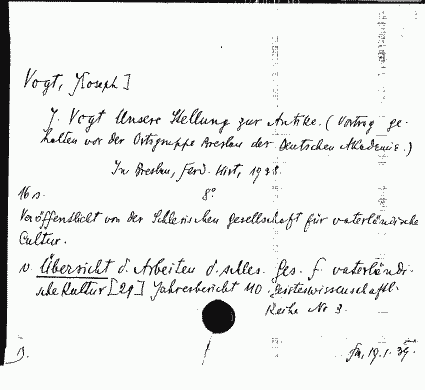 Vogt, J[oseph]
J. Vogt Unsere Stellung zur Antike. (Vortrag ge-
halten vor der Ortsgruppe Breslau der Deutschen Akademie.)
In Breslau, Ferd. Hirt, 1938.
16 s. 8°
Veröffentlicht von der Schlesischen Gesellschaft für vaterländische
Cultur.
v. Übersicht d. Arbeiten d. schles. Ges. f. vaterländi-
sche Kultur [29] Jahresbericht 110. Geisteswissenschaftl.
Reihe Nr 3.
19.1.39.